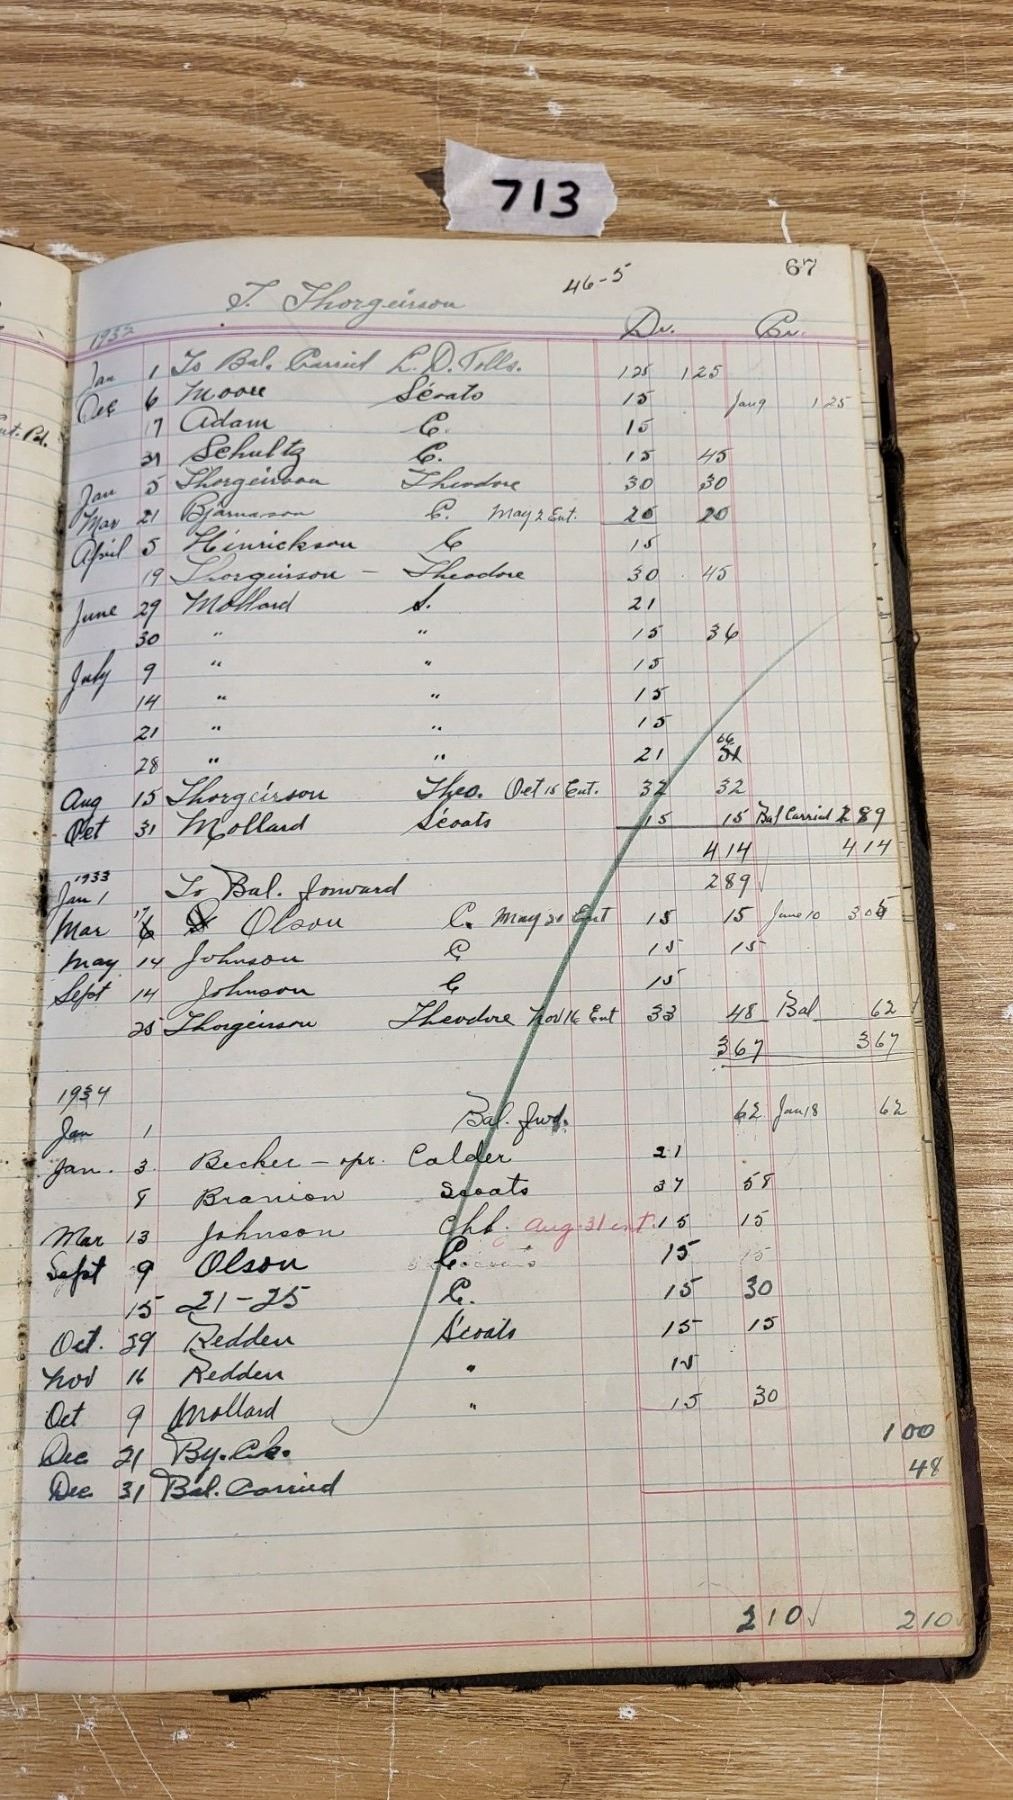 713
67
46-5
T. Thorgeirson
1932 Dr. Cr.
Jan 1 To Bal. Carried L.D. Tolls. 125 125
Dec 6 Moore Scoats 15 Jan 9 125
17 Adam C. 15
31 Schultz C. 15 45
Jan 5 Thorgeirson Theodore 30 30
Mar 21 Bjarnason C. May 2 Ent. 20 20
April 5 Hinrickson C 15
19 Thorgeirson - Theodore 30 45
June 29 Mollard S. 21
30 " " 15 36
July 9 " " 15
14 " " 15
21 " " 15
28 " " 21 66
Aug 15 Thorgeirson Theo. Oct 15 Ent. 32 32
Oct 31 Mollard Scoats 15 15 Bal Carried 289
414 414
1933
Jan 1 To Bal. forward 289
Mar 17 Olson C. May 20 Ent 15 15 June 10 305
May 14 Johnson C 15 15
Sept 14 Johnson C 15
25 Thorgeirson Theodore Nov 16 Ent 33 48 Bal 62
367 367
1934
Jan 1 Bal. fwd. 62 Jan 18 62
Jan. 3 Becker - opr. Calder 21
8 Branion Scoats 37 58
Mar 13 Johnson Chb. Aug. 31 ent. 15 15
Sept 9 Olson C. 15 15
15 21-25 C. 15 30
Oct. 29 Redden Scoats 15 15
Nov 16 Redden " 15
Oct 9 Mollard " 15 30
Dec 21 By. Ck. 100
Dec 31 Bal. Carried 48
210 210